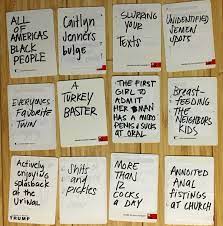 ALL
OF
AMERICAS
BLACK
PEOPLE
Caitlyn
Jenners
bulge
SLURRING
YOUR
Texts
UNIDENTIFIED
SEMEN
SPOTS
EVERYONES
FAVORITE
TWIN
A
TURKEY
BASTER
THE FIRST
GIRL TO
ADMIT
HER MAN
HAS A MICRO
PENIS & SUCKS
AT ORAL
BREAST-
FEEDING
THE
NEIGHBORS
KIDS
Actively
enjoying
splashback
of the
URINAL
TRUMP
Shits
and
pickles
MORE
THAN
12
COCKS
A DAY
ANNOINTED
ANAL
FISTINGS
AT CHURCH